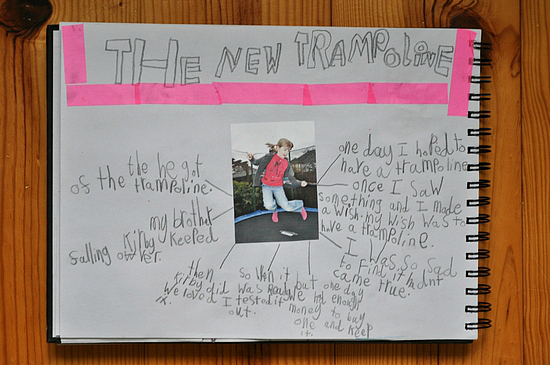 THE NEW TRAMPOLINE
one day I hoped to
have a trampoline
once I saw
something and I made
a wish. my wish was to
have a trampoline.
I was so sad
to find it hadnt
came true.
but one day
we had enough
money to buy
one and keep
it.
so when it
was ready
I tested it
out.
then
Kirby did
we loved
it.
my brother
Kirby keeped
falling over.
the he got
of the trampoline.